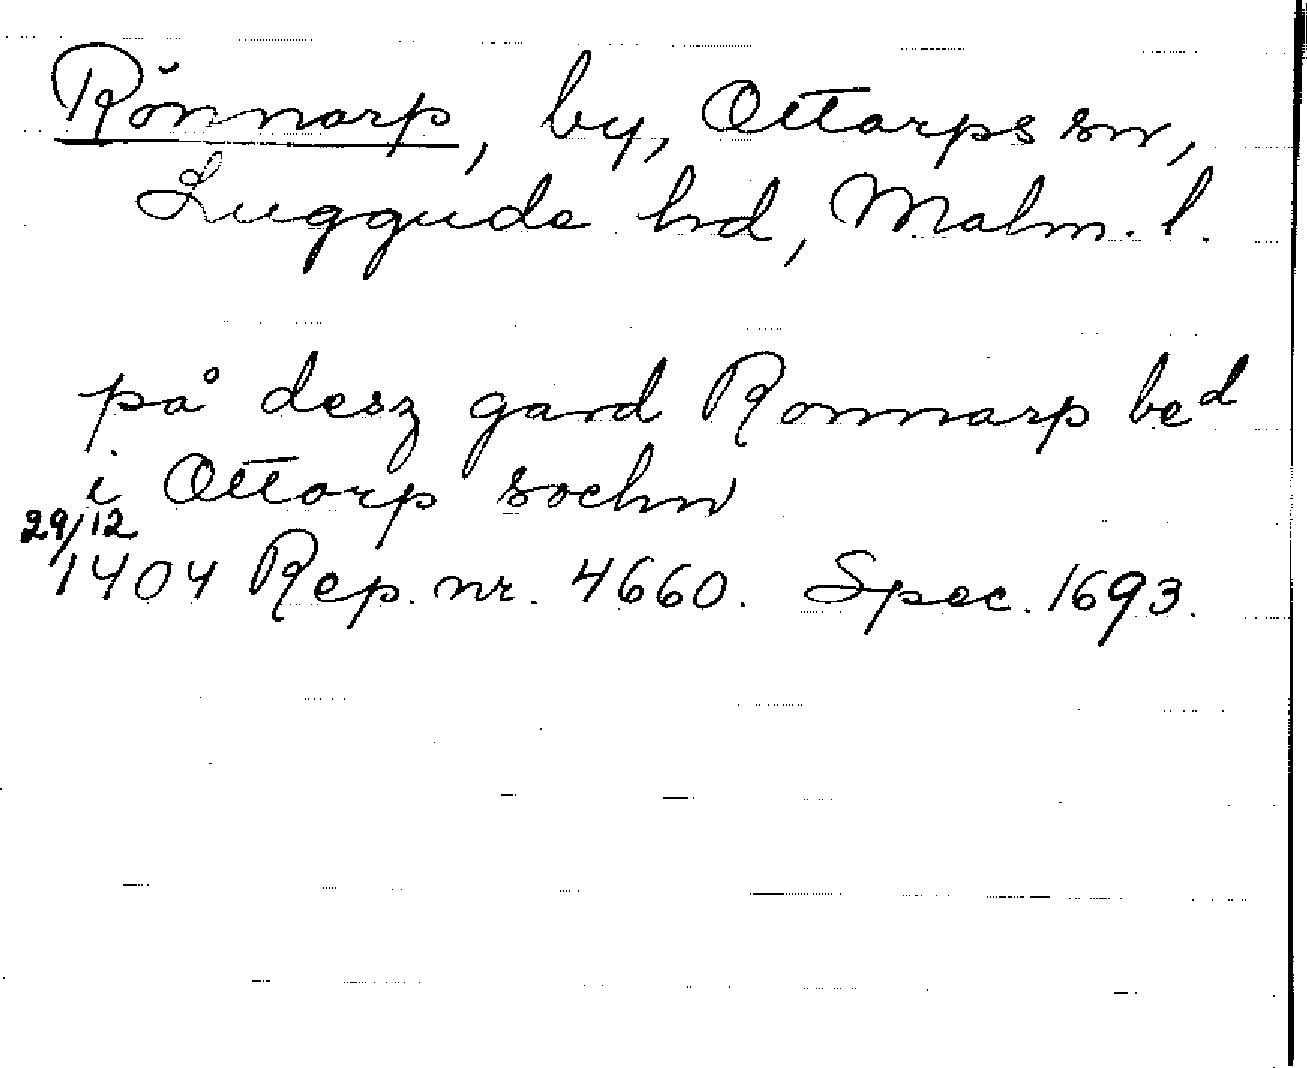 Rönnarp, by, Ottarps sn,
Luggude hd, Malm. l.
på desz gard Ronnarp be^d
i Ottarp sochn
29/12
1404 Rep. nr. 4660. Spec. 1693.